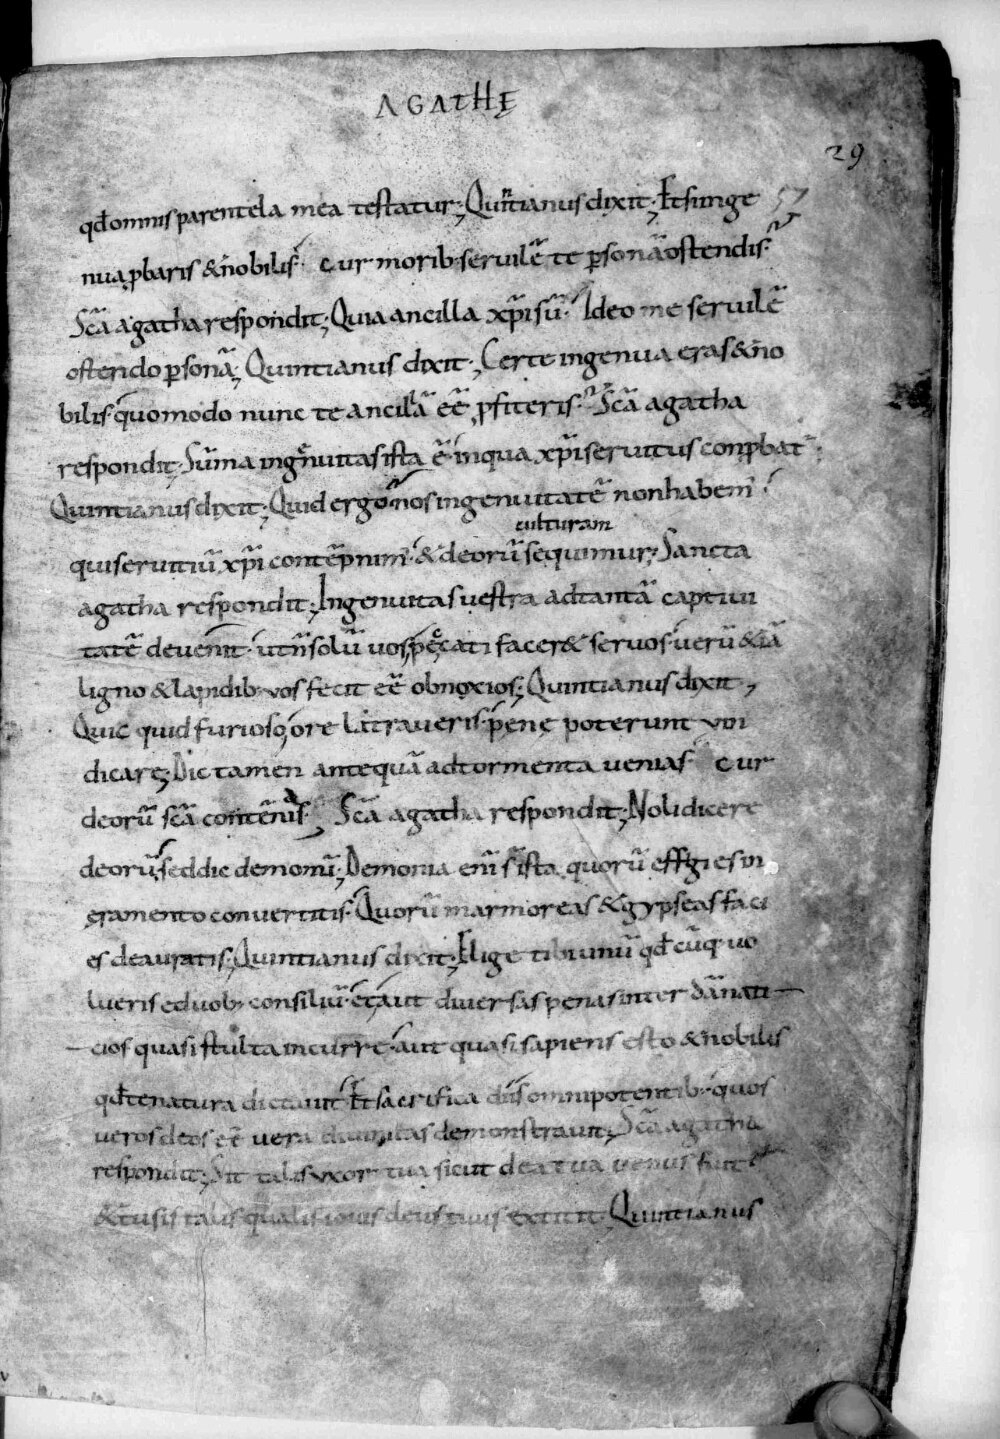 AGATHĘ
29
57
qđ omnis parentela mea testatur; Quintianus dixit; Et si inge
nua ꝓbaris & nobilis; cur morib; seruilē te ꝑsonā ostendis;
Scā agatha respondit; Quia ancilla xp̄i sū; Ideo me seruilē
ostendo ꝑsonā; Quintianus dixit; Certe ingenua eras & no
bilis; quomodo nunc te ancillā eē ꝓfiteris; Scā agatha
respondit; Sūma ingenuitas ista ē in qua xp̄i seruitus conꝓbat᷑;
Quintianus dixit; Quid ergo nos ingenuitatē non habem̄;
culturam
qui seruitiū xp̄i contēpnim̄; & deorū sequimur; Sancta
agatha respondit; Ingenuitas uestra ad tantā captiui
tatē deuenit; ut n̄ solū uos peccati facer& seruos; uerū & iā
ligno & lapidib; uos fecit eē obnoxios; Quintianus dixit;
Quicquid furioso ore blatraueris; penę poterunt uin
dicarę; Dic tamen antequā ad tormenta uenias; cur
deorū scā contēnis; Scā agatha respondit; Noli dicere
deorū; sed dic demonū; Demonia enī s̄ ista quorū effigies in
ęramento conuertitis; Quorū marmoreas & gypseas faci
es deauratis; Quintianus dixit; Elige tibi unū qđ cūq; uo
lueris e duob; consiliū; et aut diuersas penas inter dānati
cios quasi stulta incurre; aut quasi sapiens esto & nobilis
qđ te natura dictauit; Et sacrifica diis omnipotentib; quos
ueros deos eē uera diuinitas demonstrauit; Scā agatha
respondit; Sit talis uxor tua sicut dea tua uenus fuit;
& tu sis talis qualis iouis deus tuus extitit; Quintianus